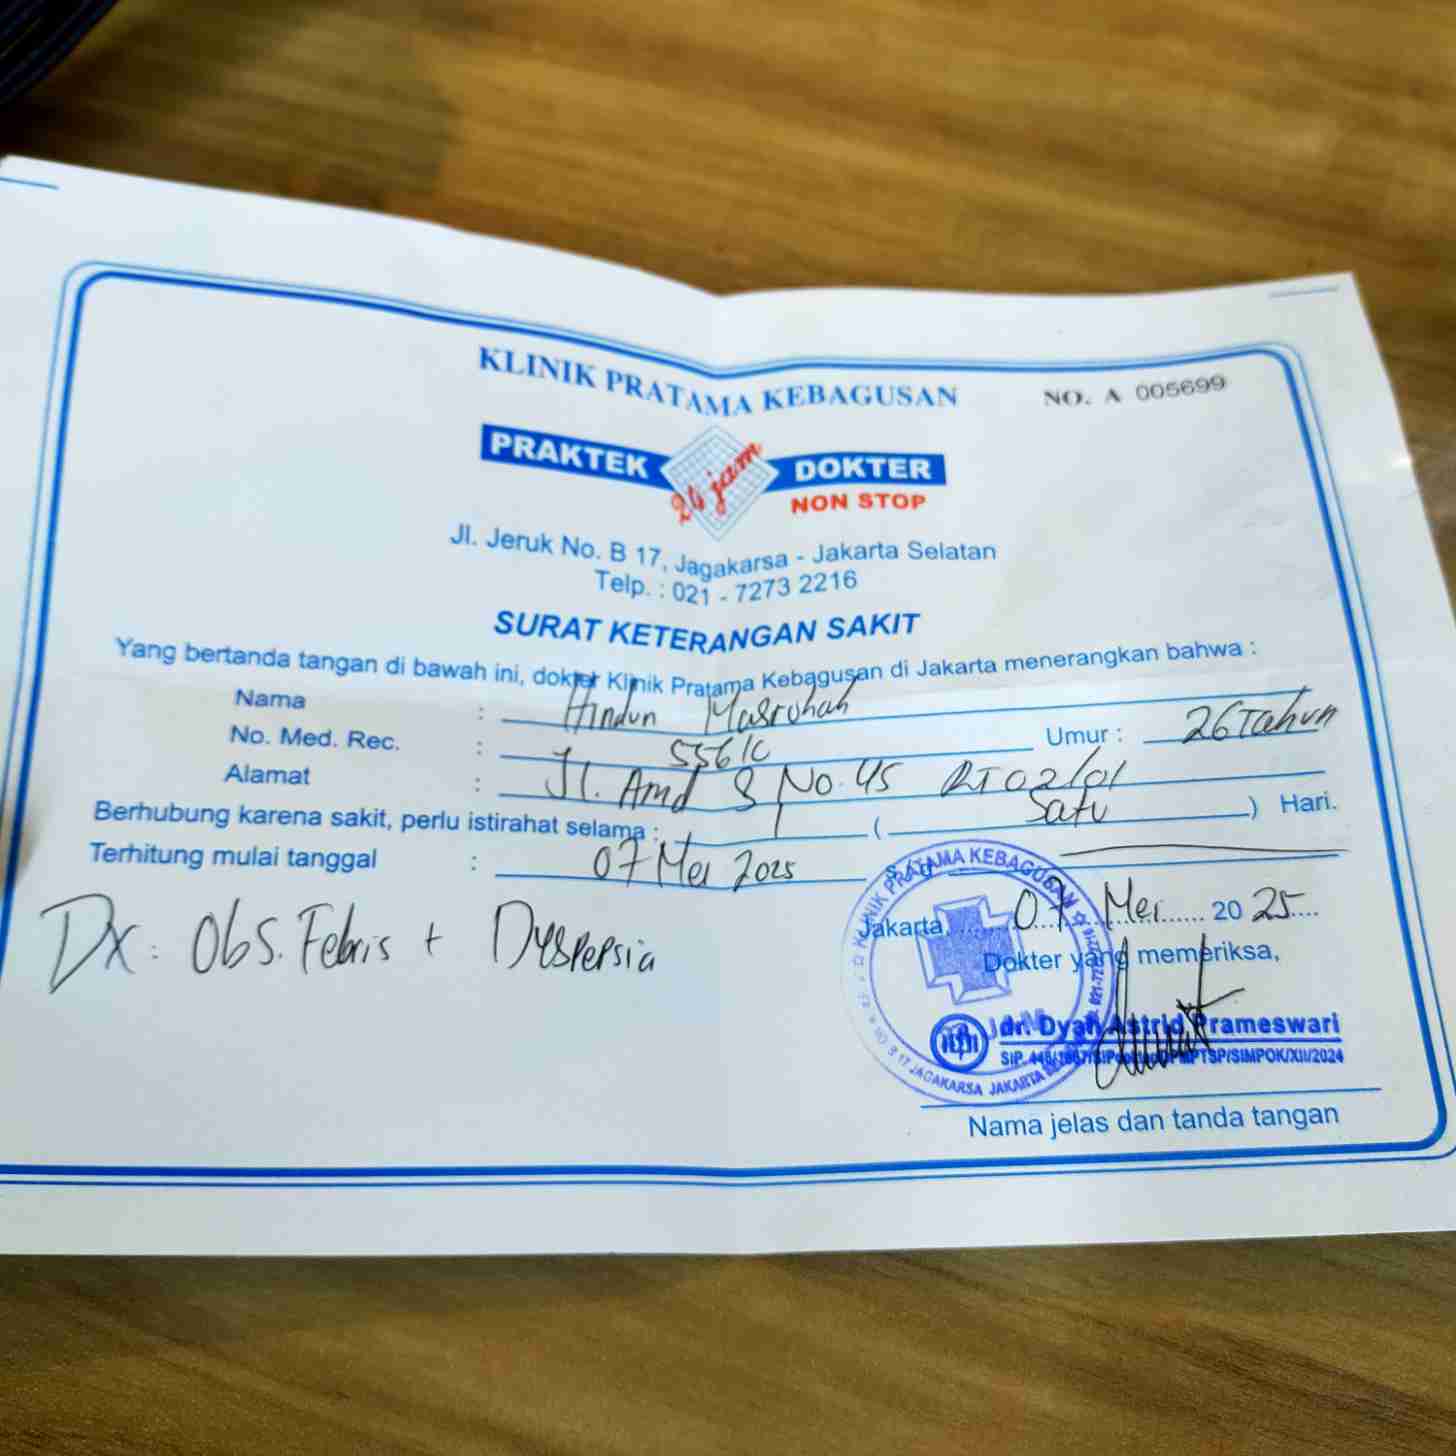 KLINIK PRATAMA KEBAGUSAN
NO. A 005699
PRAKTEK 24 jam DOKTER
NON STOP
Jl. Jeruk No. B 17, Jagakarsa - Jakarta Selatan
Telp. : 021 - 7273 2216
SURAT KETERANGAN SAKIT
Yang bertanda tangan di bawah ini, dokter Klinik Pratama Kebagusan di Jakarta menerangkan bahwa :
Nama : Hindun Masruhah
No. Med. Rec. : Umur : 26 Tahun
Alamat : Jl. Amd 8 No. 45 RT 02/01
Berhubung karena sakit, perlu istirahat selama : 1 ( Satu ) Hari.
Terhitung mulai tanggal : 07 Mei 2025
Dx : Obs. Febris + Dyspepsia
Jakarta, 07 Mei 2025
Dokter yang memeriksa,
dr. Dyah Astrid Prameswari
KLINIK PRATAMA KEBAGUSAN
JAGAKARSA JAKARTA
Nama jelas dan tanda tangan